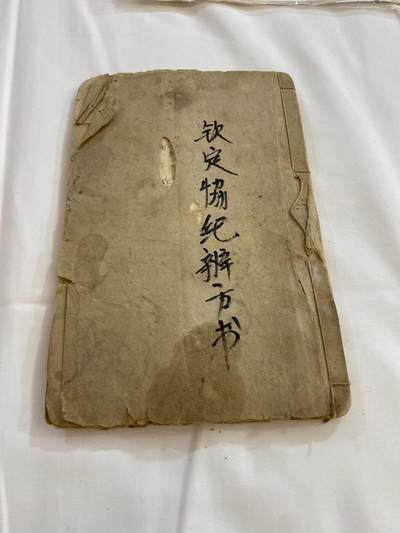 钦定恊纪辨方书